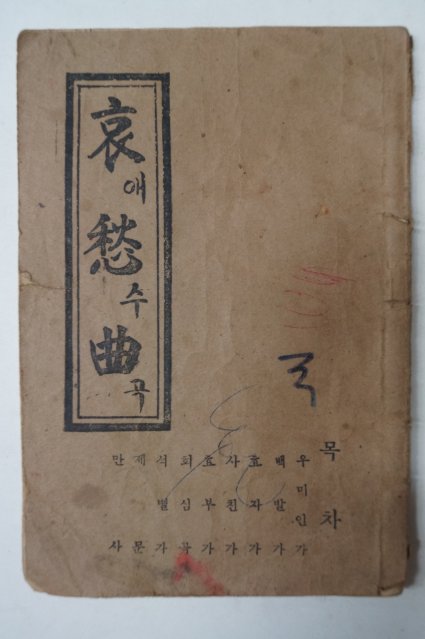 哀애愁수曲곡
목차
우미인가
백발가
효자가
사친가
효부가
회심곡
석별가
제문
만사